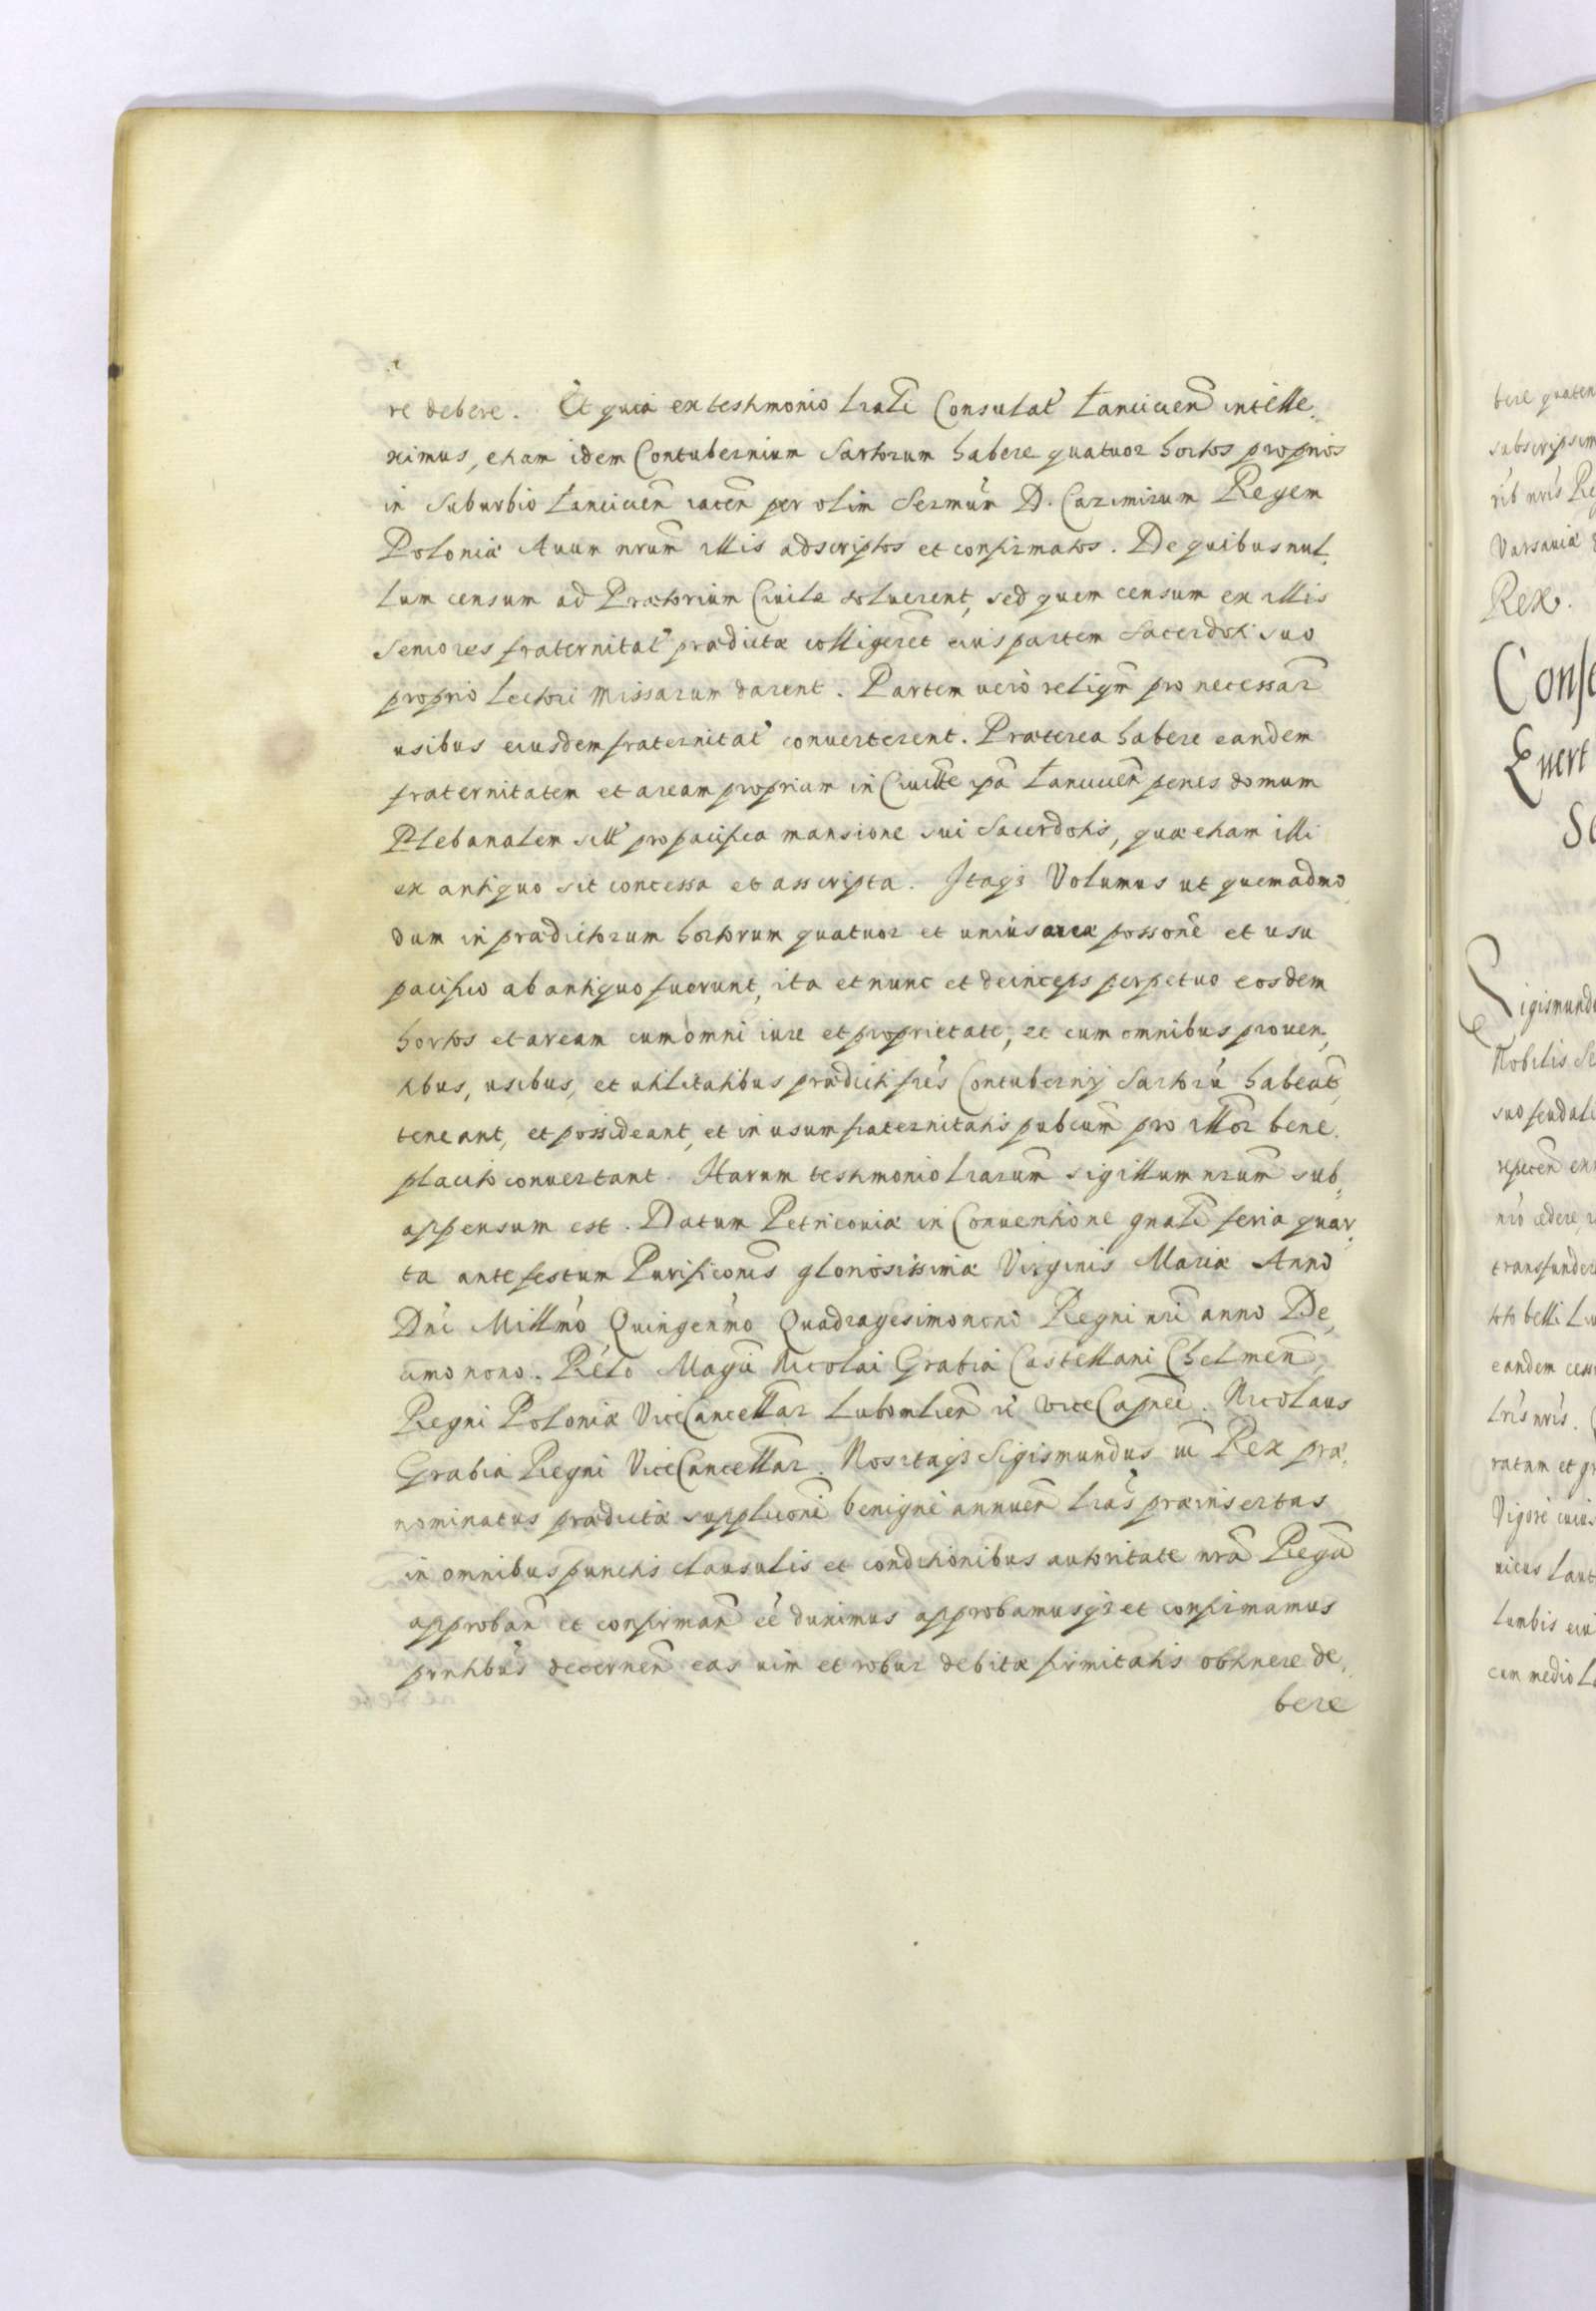 re debere. Et quia ex testimonio lrali Consulat Lancicien intelle,
ximus, etiam idem Contubernium Sartorum habere quatuor hortos proprios
in Suburbio Lancicien iacen per olim Sermum D. Cazimirum Regem
Poloniæ Auum nrum illis adscriptos et confirmatos. De quibus nul,
lum censum ad Prætorium Ciuile soluerent, sed quem censum ex illis
Seniores fraternitat prædictæ colligeret eius partem Sacerdoti suo
proprio Lectori Missarum darent. Partem uero reliqm pro necessar
usibus eiusdem fraternitat conuerterent. Præterea habere eandem
fraternitatem et aream propriam in Ciuitte ipa Lancicien penes domum
Plebanalem sitt pro pacifica mansione sui Sacerdotis, quæ etiam illi
ex antiquo sit concessa et asscripta. Itaq3 Volumus ut quemadmo,
dum in prædictorum hortorum quatuor et unius areæ possone et usu
pacifico ab antiquo fuerunt, ita et nunc et deinceps perpetuo eosdem
hortos et aream cum omni iure et proprietate, et cum omnibus prouen,
tibus, usibus, et utilitatibus prædicti fres Contubernij Sartoru habeat,
teneant, et possideant, et in usum fraternitatis pubcum pro illor bene
placito conuertant. Harum testimonio lrarum sigillum nrum sub,
appensum est. Datum Petricouiæ in Conuentione gnali feria quar,
ta ante festum Purificonis gloriosissimæ Virginis Mariæ Anno
Dni Millmo Quingenmo Quadragesimonono Regni nri anno De,
cimo nono. Relo Magci Nicolai Grabia Castellani Chelmen,
Regni Poloniæ ViceCancellar Lubomlien et vice Capnei. Nicolaus
Grabia Regni ViceCancellar. Nos itaq3 Sigismundus III Rex præ,
nominatus prædictæ suppliconi benigne annuen lras præinsertas
in omnibus punctis clausulis et conditionibus autoritate nra Regia
approban et confirman ee duximus approbamusq3 et confirmamus
prntibus decernen eas uim et robur debitæ firmitatis obtinere de,
bere